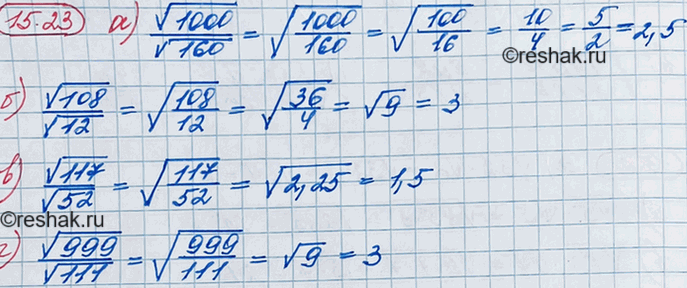 15.23 а) √1000/√160 = √(1000/160) = √(100/16) = 10/4 = 5/2 = 2,5
©reshak.ru
б) √108/√12 = √(108/12) = √(36/4) = √9 = 3
в) √117/√52 = √(117/52) = √2,25 = 1,5
©reshak.ru
г) √999/√111 = √(999/111) = √9 = 3